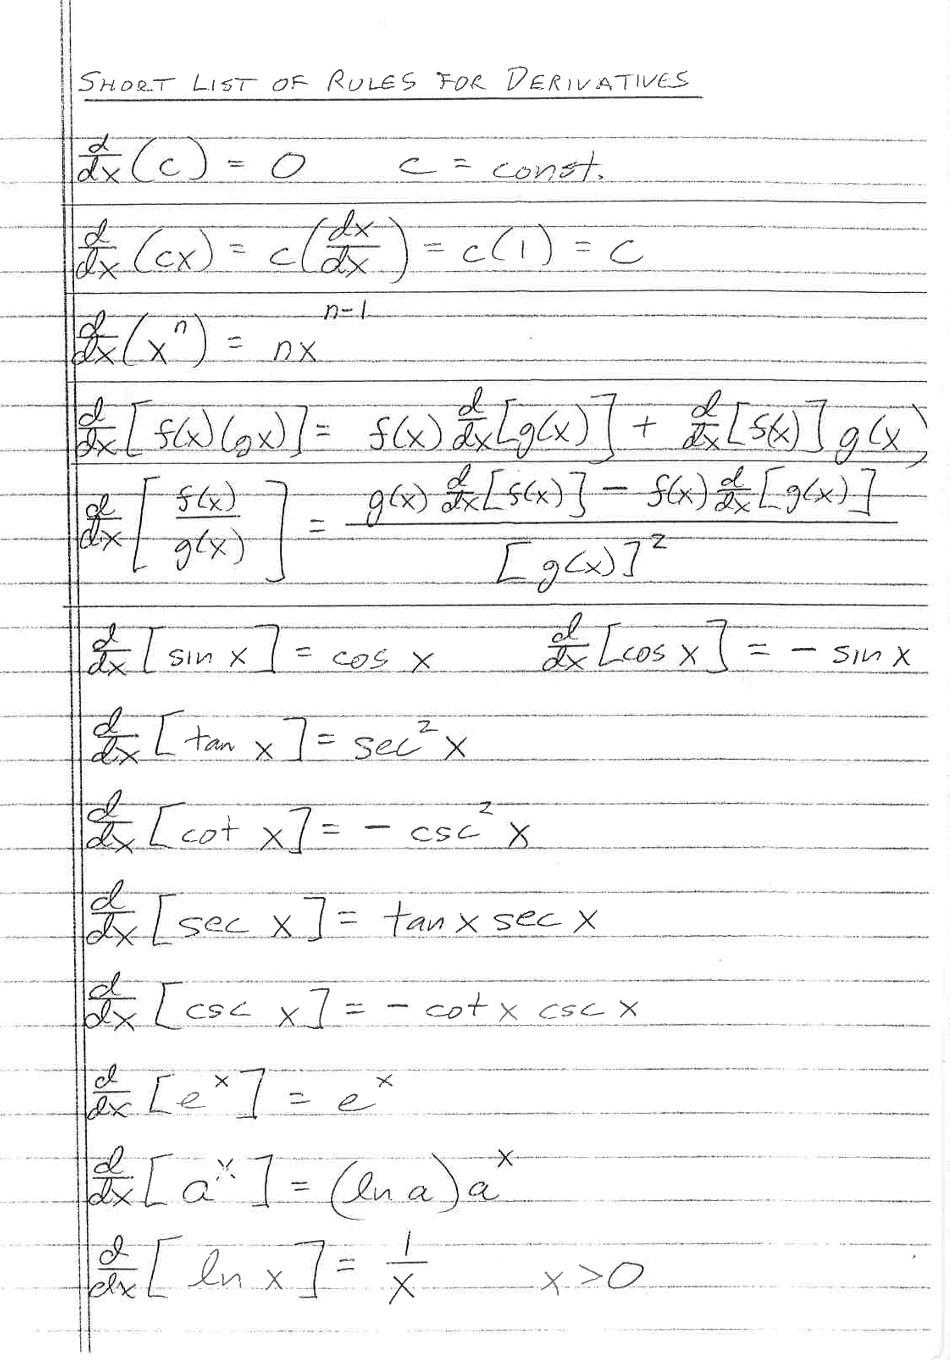 SHORT LIST OF RULES FOR DERIVATIVES
d/dx (c) = 0 c = const.
d/dx (cx) = c(dx/dx) = c(1) = c
d/dx (x^n) = nx^(n-1)
d/dx [f(x)(gx)] = f(x) d/dx [g(x)] + d/dx [f(x)] g(x)
d/dx [f(x)/g(x)] = (g(x) d/dx [f(x)] - f(x) d/dx [g(x)]) / [g(x)]^2
d/dx [sin x] = cos x d/dx [cos x] = - sin x
d/dx [tan x] = sec^2 x
d/dx [cot x] = - csc^2 x
d/dx [sec x] = tan x sec x
d/dx [csc x] = - cot x csc x
d/dx [e^x] = e^x
d/dx [a^x] = (ln a) a^x
d/dx [ln x] = 1/x x > 0